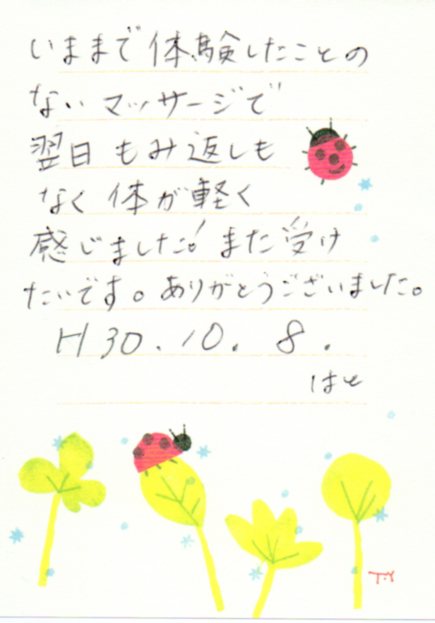 いままで体験したことの
ないマッサージで
翌日もみ返しも
なく体が軽く
感じました!また受け
たいです。ありがとうございました。
H30.10.8.
はと
T.Y